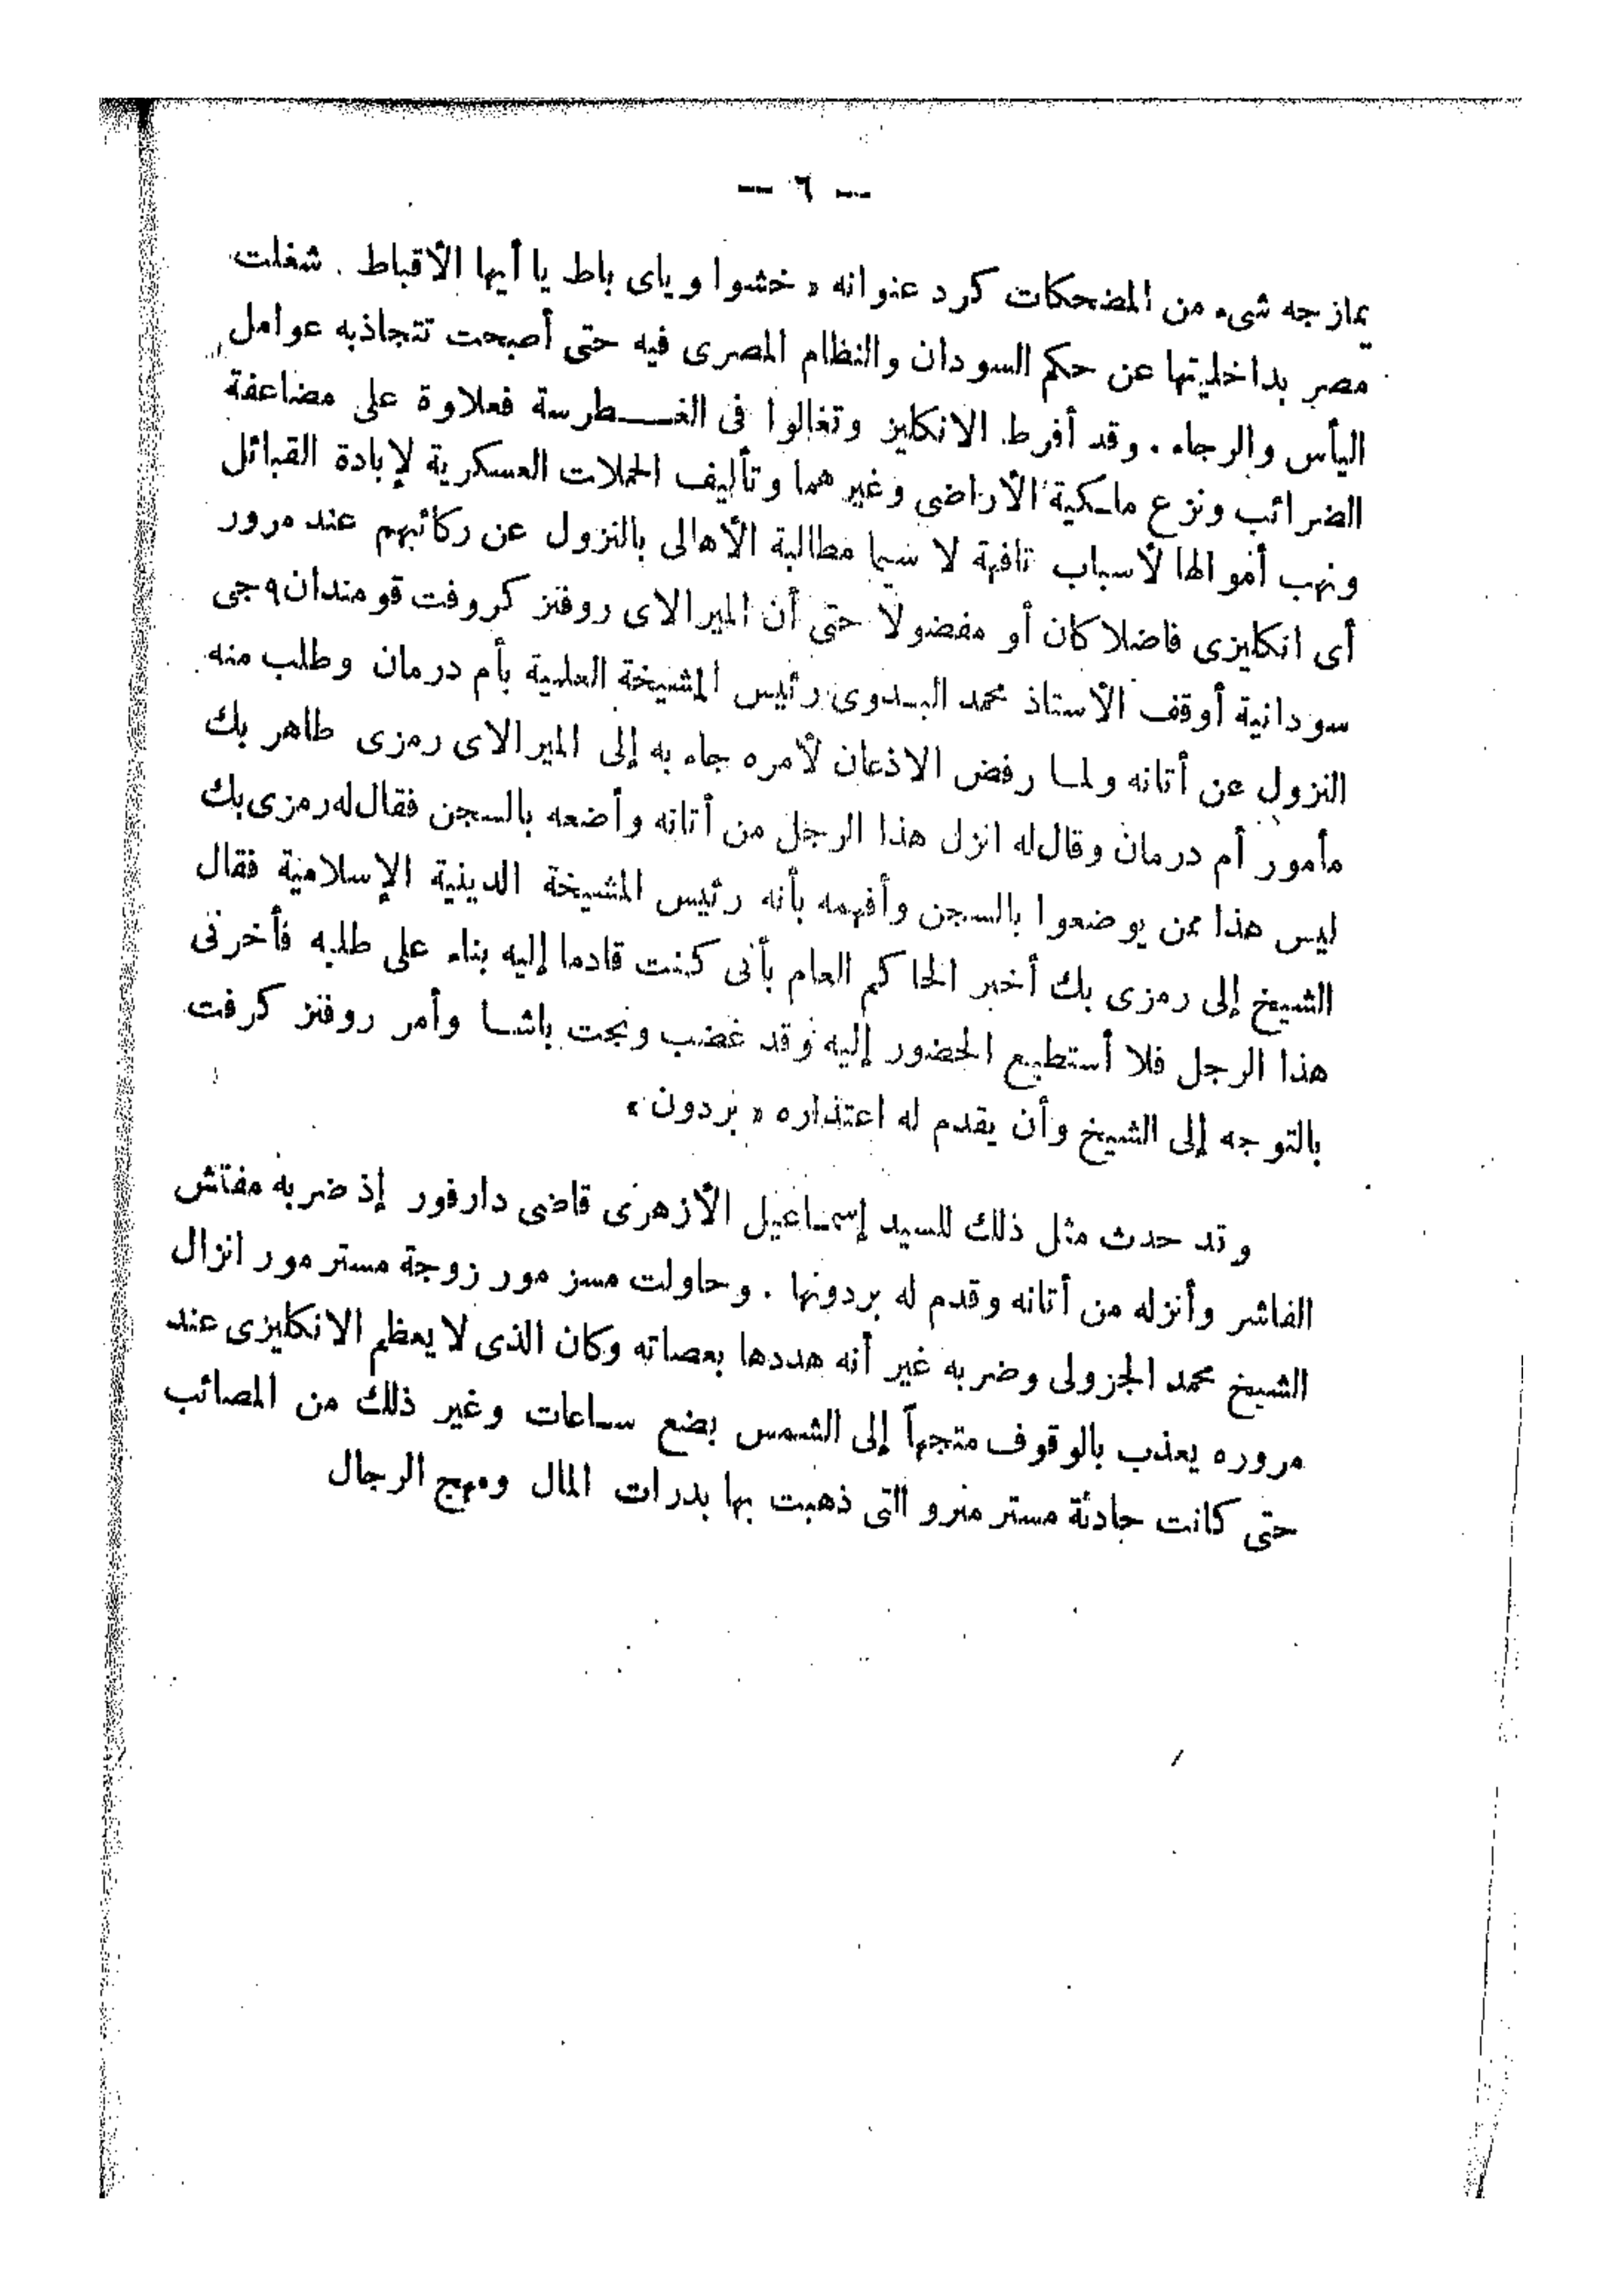 — ٦ —
يمازجه شىء من المضحكات كرد عنوانه « خشوا وياى باط يا أيها الأقباط . شغلت
مصر بداخليتها عن حكم السودان والنظام المصرى فيه حتى أصبحت تتجاذبه عوامل
اليأس والرجاء . وقد أفرط الانكليز وتغالوا فى الغـــطرسة فعلاوة على مضاعفة
الضرائب ونزع ملكية الأراضى وغيرهما وتأليف الحملات العسكرية لإبادة القبائل
ونهب أموالها لأسباب تافهة لا سيما مطالبة الأهالى بالنزول عن ركائبهم عند مرور
أى انكليزى فاضلا كان أو مفضولا حتى أن الميرالاى روفنز كروفت قومندان ٩ جى
سودانية أوقف الأستاذ محمد البدوى رئيس المشيخة العلمية بأم درمان وطلب منه
النزول عن أتانه ولمـا رفض الاذعان لأمره جاء به إلى الميرالاى رمزى طاهر بك
مأمور أم درمان وقال له انزل هذا الرجل من أتانه وأضعه بالسجن فقال له رمزى بك
ليس هذا ممن يوضعوا بالسجن وأفهمه بأنه رئيس المشيخة الدينية الإسلامية فقال
الشيخ إلى رمزى بك أخبر الحاكم العام بأنى كنت قادما إليه بناء على طلبه فأخرنى
هذا الرجل فلا أستطيع الحضور إليه وقد غضب ونجت باشـا وأمر روفنز كرفت
بالتوجه إلى الشيخ وأن يقدم له اعتذاره « بردون »
وقد حدث مثل ذلك للسيد إسمـاعيل الأزهرى قاضى دارفور إذ ضربه مفتش
الفاشر وأنزله من أتانه وقدم له بردونها . وحاولت مسز مور زوجة مستر مور انزال
الشيخ محمد الجزولى وضربه غير أنه هددها بعصاته وكان الذى لا يعظم الانكليزى عند
مروره يعذب بالوقوف متجهاً إلى الشمس بضع ساعات وغير ذلك من المصائب
حتى كانت حادثة مستر منرو التى ذهبت بها بدرات المال ومهج الرجال